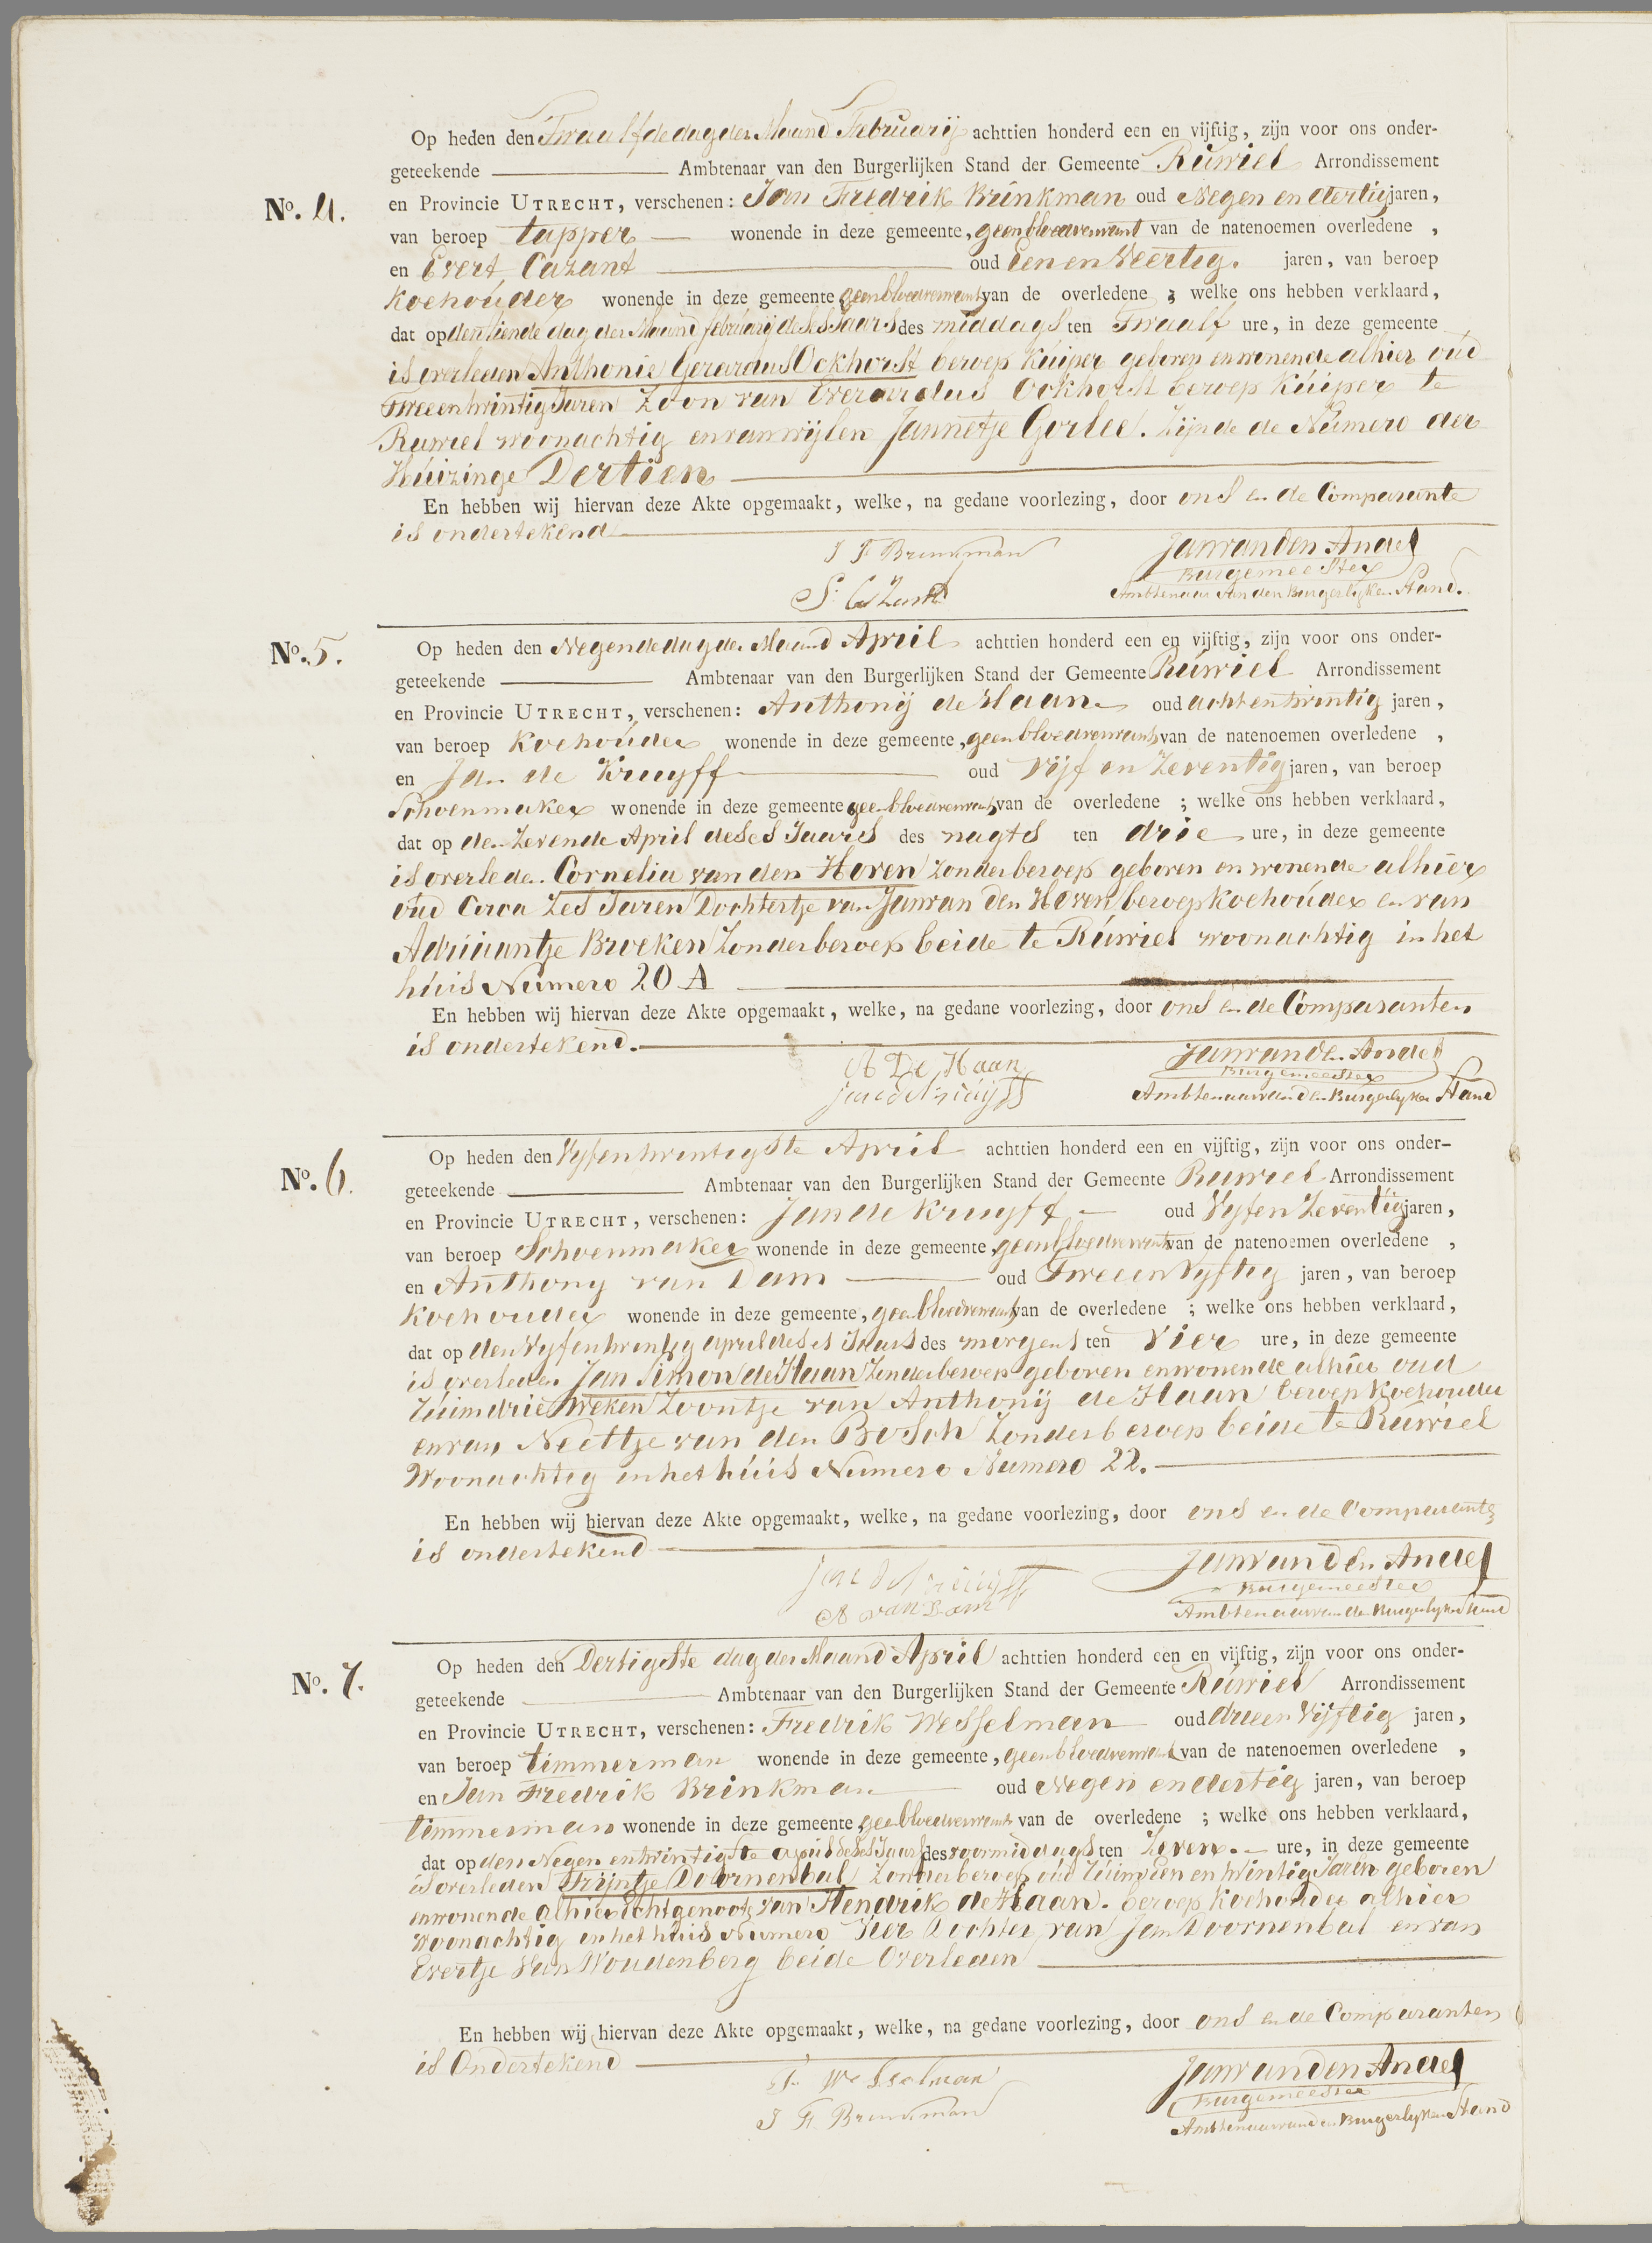 Op heden den Twaalfde dag der Maand Februarij achttien honderd een en vijftig, zijn voor ons onder-
geteekende Ambtenaar van den Burgerlijken Stand der Gemeente Rúwiel Arrondissement
No. 4.
en Provincie UTRECHT, verschenen: Jan Fredrik Brinkman oud Negen en dertig jaren,
van beroep tapper wonende in deze gemeente, geen bloedverwant van de natenoemen overledene ,
en Evert Cazant oud Een en Veertig. jaren, van beroep
Koehoúder wonende in deze gemeente geen bloedverwant van de overledene ; welke ons hebben verklaard,
dat op den tiende dag der Maand februarij deses Jaars des middags ten Twaalf ure, in deze gemeente
is overleden Anthonie Gerardus Ockhorst beroep kúiper geboren en wonende alhier oúd
Twee en twintig Jaren Zoon van Everardus Ockhorst beroep Kúiper te
Ruwiel woonachtig en van wijlen Jannetje Gorlee. Zijnde de Número der
Húizinge Dertien
En hebben wij hiervan deze Akte opgemaakt, welke, na gedane voorlezing, door ons en de Comparante
is ondertekend
J F Brinkman Jan van den Andel
Burgemeester
Ambtenaar van den Burgerlijken Stand.
No. 5. Op heden den Negende dag der Maand April achttien honderd een en vijftig, zijn voor ons onder-
geteekende Ambtenaar van den Burgerlijken Stand der Gemeente Rúwiel Arrondissement
en Provincie UTRECHT, verschenen: Anthonij de Haan oud acht en twintig jaren,
van beroep Koehoúder wonende in deze gemeente, geen bloedverwant van de natenoemen overledene ,
en Jan de Kruyff oud Vijf en Zeventig jaren, van beroep
Schoenmaker wonende in deze gemeente geen bloedverwant van de overledene ; welke ons hebben verklaard,
dat op den Zevende April deses Jaars des nagts ten drie ure, in deze gemeente
is overleden Cornelia van den Hoven Zonder beroep geboren en wonende alhier
oúd Circa Zes Jaren Dochtertje van Jan van den Hoven beroep koehoúder en van
Adriaantje Broeken Zonder beroep beide te Rúwiel woonachtig in het
húis Número 20 A
En hebben wij hiervan deze Akte opgemaakt, welke, na gedane voorlezing, door ons en de Comparanten
is ondertekend.
A De Haan Jan van den Andel
Jan de Kruijff Burgemeester
Ambtenaar van den Burgerlyken Stand
No. 6. Op heden den Vyfentwintigste April achttien honderd een en vijftig, zijn voor ons onder-
geteekende Ambtenaar van den Burgerlijken Stand der Gemeente Ruwiel Arrondissement
en Provincie UTRECHT, verschenen: Jan de Kruyff oud Vyf en Zeventig jaren,
van beroep Schoenmaker wonende in deze gemeente, geen bloedverwant van de natenoemen overledene ,
en Anthony van Dam oud Twee en Vyftig jaren, van beroep
Koehouder wonende in deze gemeente, geen bloedverwant van de overledene ; welke ons hebben verklaard,
dat op den Vyfentwintig april deses Jaars des morgens ten Vier ure, in deze gemeente
is overleden Jan Simon de Haan Zonder beroep geboren en wonende alhier oud
Ruim drie Weken Zoontje van Anthonij de Haan beroep Koehouder
en van Neeltje van den Bosch Zonder beroep beide te Rúwiel
Woonachtig in het húis Numero Numero 22.
En hebben wij hiervan deze Akte opgemaakt, welke, na gedane voorlezing, door ons en de Comparante
is ondertekend
Jan de Kruijff Jan van den Andel
A van Dam Burgemeester
Ambtenaar van den Burgerlyken Stand
No. 7. Op heden den Dertigste dag der Maand April achttien honderd een en vijftig, zijn voor ons onder-
geteekende Ambtenaar van den Burgerlijken Stand der Gemeente Rúwiel Arrondissement
en Provincie UTRECHT, verschenen: Fredrik Wesselman oud drie en Vijftig jaren,
van beroep timmerman wonende in deze gemeente, geen bloedverwant van de natenoemen overledene ,
en Jan Fredrik Brinkman oud Negen en dertig jaren, van beroep
timmerman wonende in deze gemeente geen bloedverwant van de overledene ; welke ons hebben verklaard,
dat op den Negen en twintigste april deses Jaars des voormiddags ten Zeven. ure, in deze gemeente
is overleden Trijntje Doornenbal Zonder beroep oud en twintig Jaren geboren
en wonende alhier Echtgenoote van Hendrik de Haan. beroep koehouder alhier
Woonachtig in het húis Numero Vier Dochter van Jan Doornenbal en van
Evertje Van Woudenberg beide Overleden
En hebben wij hiervan deze Akte opgemaakt, welke, na gedane voorlezing, door ons en de Comparanten
is Ondertekend
F. Wesselman Jan van den Andel
J F. Brinkman Burgemeester
Ambtenaar van den Burgerlyken Stand